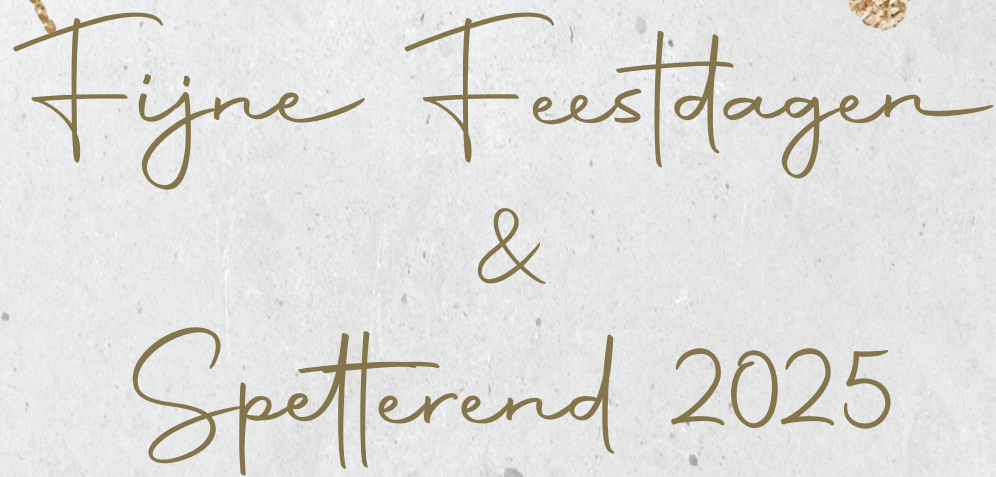 Fijne Feestdagen
&
Spetterend 2025